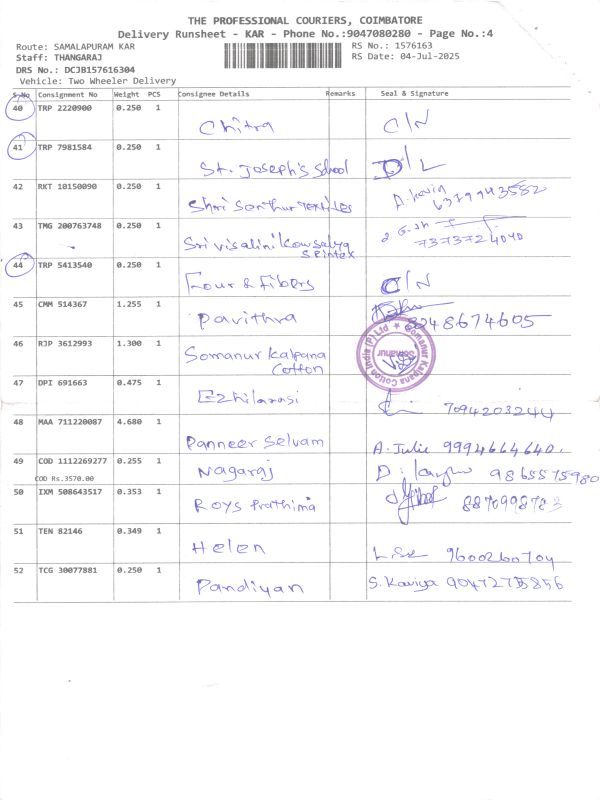 THE PROFESSIONAL COURIERS, COIMBATORE
Delivery Runsheet - KAR - Phone No.:9047080280 - Page No.:4
Route: SAMALAPURAM KAR RS No.: 1576163
Staff: THANGARAJ RS Date: 04-Jul-2025
DRS No.: DCJB157616304
Vehicle: Two Wheeler Delivery
S.No Consignment No Weight PCS Consignee Details Remarks Seal & Signature
40 TRP 2220900 0.250 1
Chitra C/N
41 TRP 7981584 0.250 1
St. Joseph's School D/L
42 RKT 10150090 0.250 1
Shri Santhur Textiles A. Kavin 6379943582
43 TMG 200763748 0.250 1
Sri visalini Kowsalya 7373724040
Spintex
44 TRP 5413540 0.250 1
Four & Fibers C/N
45 CMM 514367 1.255 1
Pavithra 8248674605
46 RJP 3612993 1.300 1
Somanur Kalpana Somanur Kalpana Cotton India (P) Ltd
Cotton Somanur
47 DPI 691663 0.475 1
Ezhilarasi 7094203244
48 MAA 711220087 4.680 1
Panneer Selvam A. Julie 9994664640.
49 COD 1112269277 0.255 1
Nagaraj 9865575980
COD Rs.3570.00
50 IXM 508643517 0.353 1
Roys Prathima 8870998783
51 TEN 82146 0.349 1
Helen 9600260704
52 TCG 30077881 0.250 1
Pandiyan S. Kaviya 9047275856